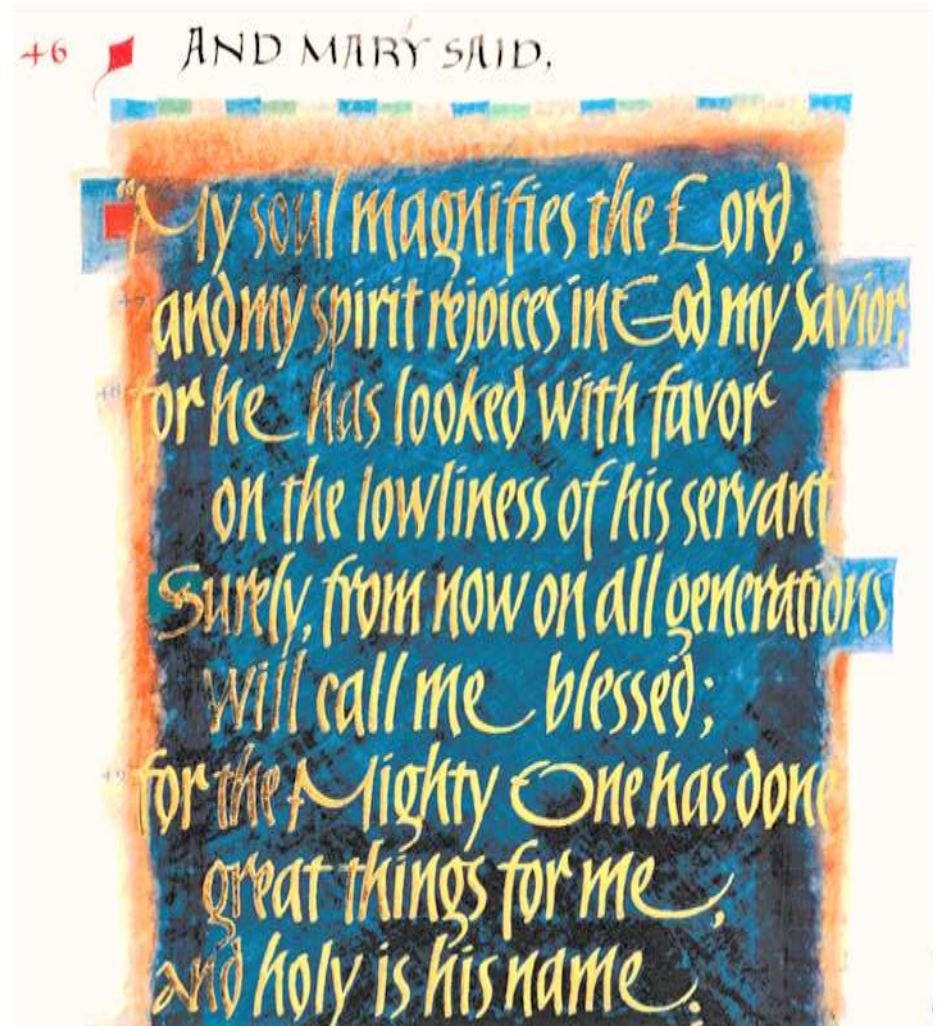 46 AND MARY SAID,
"My soul magnifies the Lord,
47 and my spirit rejoices in God my Savior,
48 for he has looked with favor
on the lowliness of his servant
Surely, from now on all generations
will call me blessed;
49 for the Mighty One has done
great things for me,
and holy is his name.